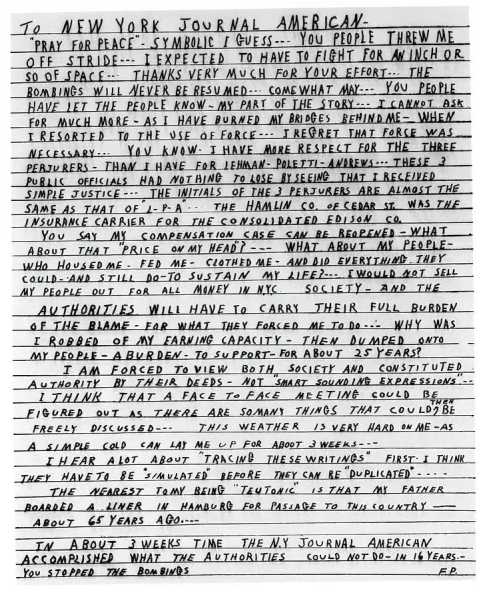 TO NEW YORK JOURNAL AMERICAN-
"PRAY FOR PEACE"- SYMBOLIC I GUESS--- YOU PEOPLE THREW ME
OFF STRIDE--- I EXPECTED TO HAVE TO FIGHT FOR AN INCH OR
SO OF SPACE--- THANKS VERY MUCH FOR YOUR EFFORT--- THE
BOMBINGS WILL NEVER BE RESUMED--- COME WHAT MAY--- YOU PEOPLE
HAVE LET THE PEOPLE KNOW-MY PART OF THE STORY--- I CANNOT ASK
FOR MUCH MORE- AS I HAVE BURNED MY BRIDGES BEHIND ME- WHEN
I RESORTED TO THE USE OF FORCE--- I REGRET THAT FORCE WAS
NECESSARY--- YOU KNOW- I HAVE MORE RESPECT FOR THE THREE
PERJURERS- THAN I HAVE FOR LEHMAN-POLETTI-ANDREWS--- THESE 3
PUBLIC OFFICIALS HAD NOTHING TO LOSE BY SEEING THAT I RECEIVED
SIMPLE JUSTICE--- THE INITIALS OF THE 3 PERJURERS ARE ALMOST THE
SAME AS THAT OF "L-P-A"-- THE HAMLIN CO. OF CEDAR ST. WAS THE
INSURANCE CARRIER FOR THE CONSOLIDATED EDISON CO.
YOU SAY MY COMPENSATION CASE CAN BE REOPENED-WHAT
ABOUT THAT "PRICE ON MY HEAD"?---- WHAT ABOUT MY PEOPLE-
WHO HOUSED ME- FED ME- CLOTHED ME- AND DID EVERYTHING THEY
COULD-AND STILL DO-TO SUSTAIN MY LIFE?--- I WOULD NOT SELL
MY PEOPLE OUT FOR ALL MONEY IN N.Y.C. SOCIETY- AND THE
AUTHORITIES WILL HAVE TO CARRY THEIR FULL BURDEN
OF THE BLAME- FOR WHAT THEY FORCED ME TO DO--- WHY WAS
I ROBBED OF MY EARNING CAPACITY- THEN DUMPED ONTO
MY PEOPLE- A BURDEN- TO SUPPORT-FOR ABOUT 25 YEARS?
I AM FORCED TO VIEW BOTH SOCIETY AND CONSTITUTED
AUTHORITY BY THEIR DEEDS- NOT "SMART SOUNDING EXPRESSIONS"--
I THINK THAT A FACE TO FACE MEETING COULD BE
FIGURED OUT AS THERE ARE SO MANY THINGS THAT COULD THEN BE
FREELY DISCUSSED--- THIS WEATHER IS VERY HARD ON ME-AS
A SIMPLE COLD CAN LAY ME UP FOR ABOUT 3 WEEKS---
I HEAR A LOT ABOUT "TRACING THESE WRITINGS" FIRST-I THINK
THEY HAVE TO BE "SIMULATED" BEFORE THEY CAN BE "DUPLICATED"----
THE NEAREST TO MY BEING "TEUTONIC" IS THAT MY FATHER
BOARDED A LINER IN HAMBURG FOR PASSAGE TO THIS COUNTRY—
ABOUT 65 YEARS AGO----
IN ABOUT 3 WEEKS TIME THE N.Y JOURNAL AMERICAN
ACCOMPLISHED WHAT THE AUTHORITIES COULD NOT DO-IN 16 YEARS.-
YOU STOPPED THE BOMBINGS F.P.